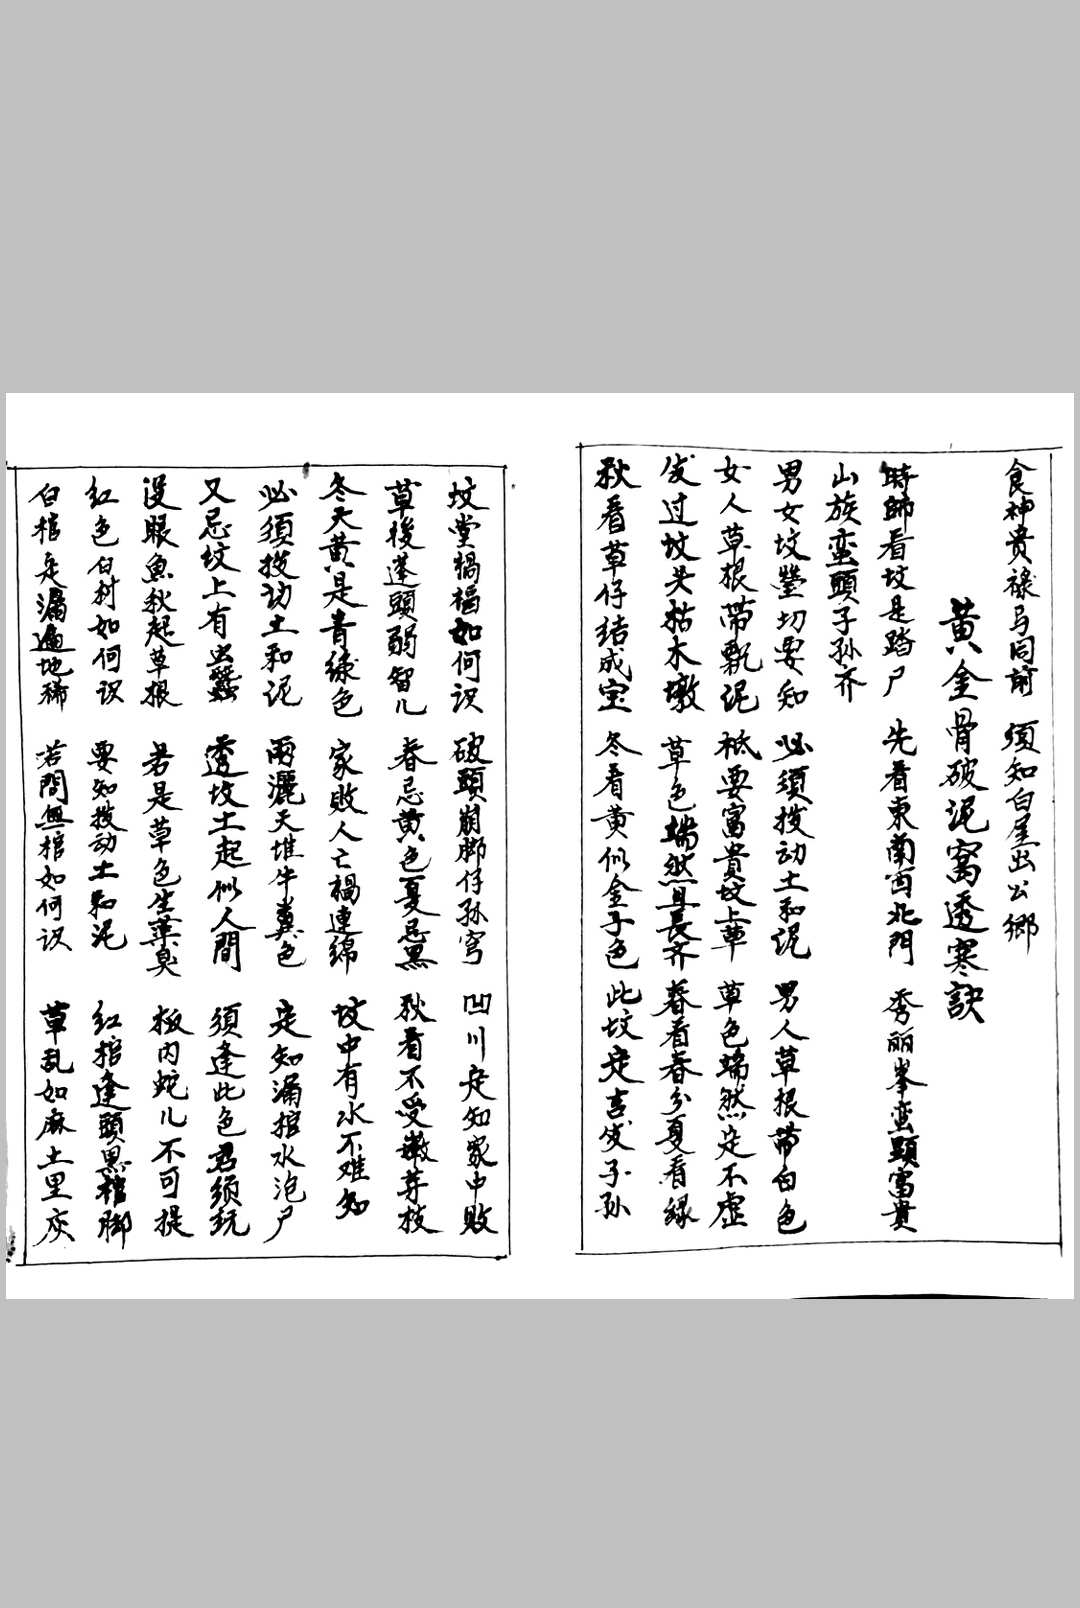 食神贵禄马同前 须知白屋出公鄉
黄金骨破泥窝透寒訣
時師看坟是踏尸 先看東南西北門 秀丽峯蛮顕富貴
山族蛮頭子孙齐
男女坟瑩切要知 必须拨动土和泥 男人草根带白色
女人草根带甎泥 祗要富貴坟上草 草色端然定不虚
发过坟头枯木墩 草色端然且長齐 春看春分夏看緑
秋看草仔结成宝 冬看黄似金子色 此坟定吉发子孙
坟堂禍福如何识 破頭崩脚仔孙穷 凹川定知家中败
草後蓬頭弱智儿 春忌黄色夏忌黑 秋看不受嫩芽枝
冬天黄是青绿色 家败人亡禍連綿 坟中有水不难知
必须拨动土和泥 雨灑天堆牛粪色 定知漏棺水泡尸
又忌坟上有虫蟻 透坟土起似人間 须逢此色君须玩
没眼魚秋起草根 若是草色生葉臭 板内蛇儿不可提
红色白树如何识 要知拨动土和泥 红棺逢頭黑棺脚
白棺定漏遍地稀 若問無棺如何识 草乱如麻土里灰